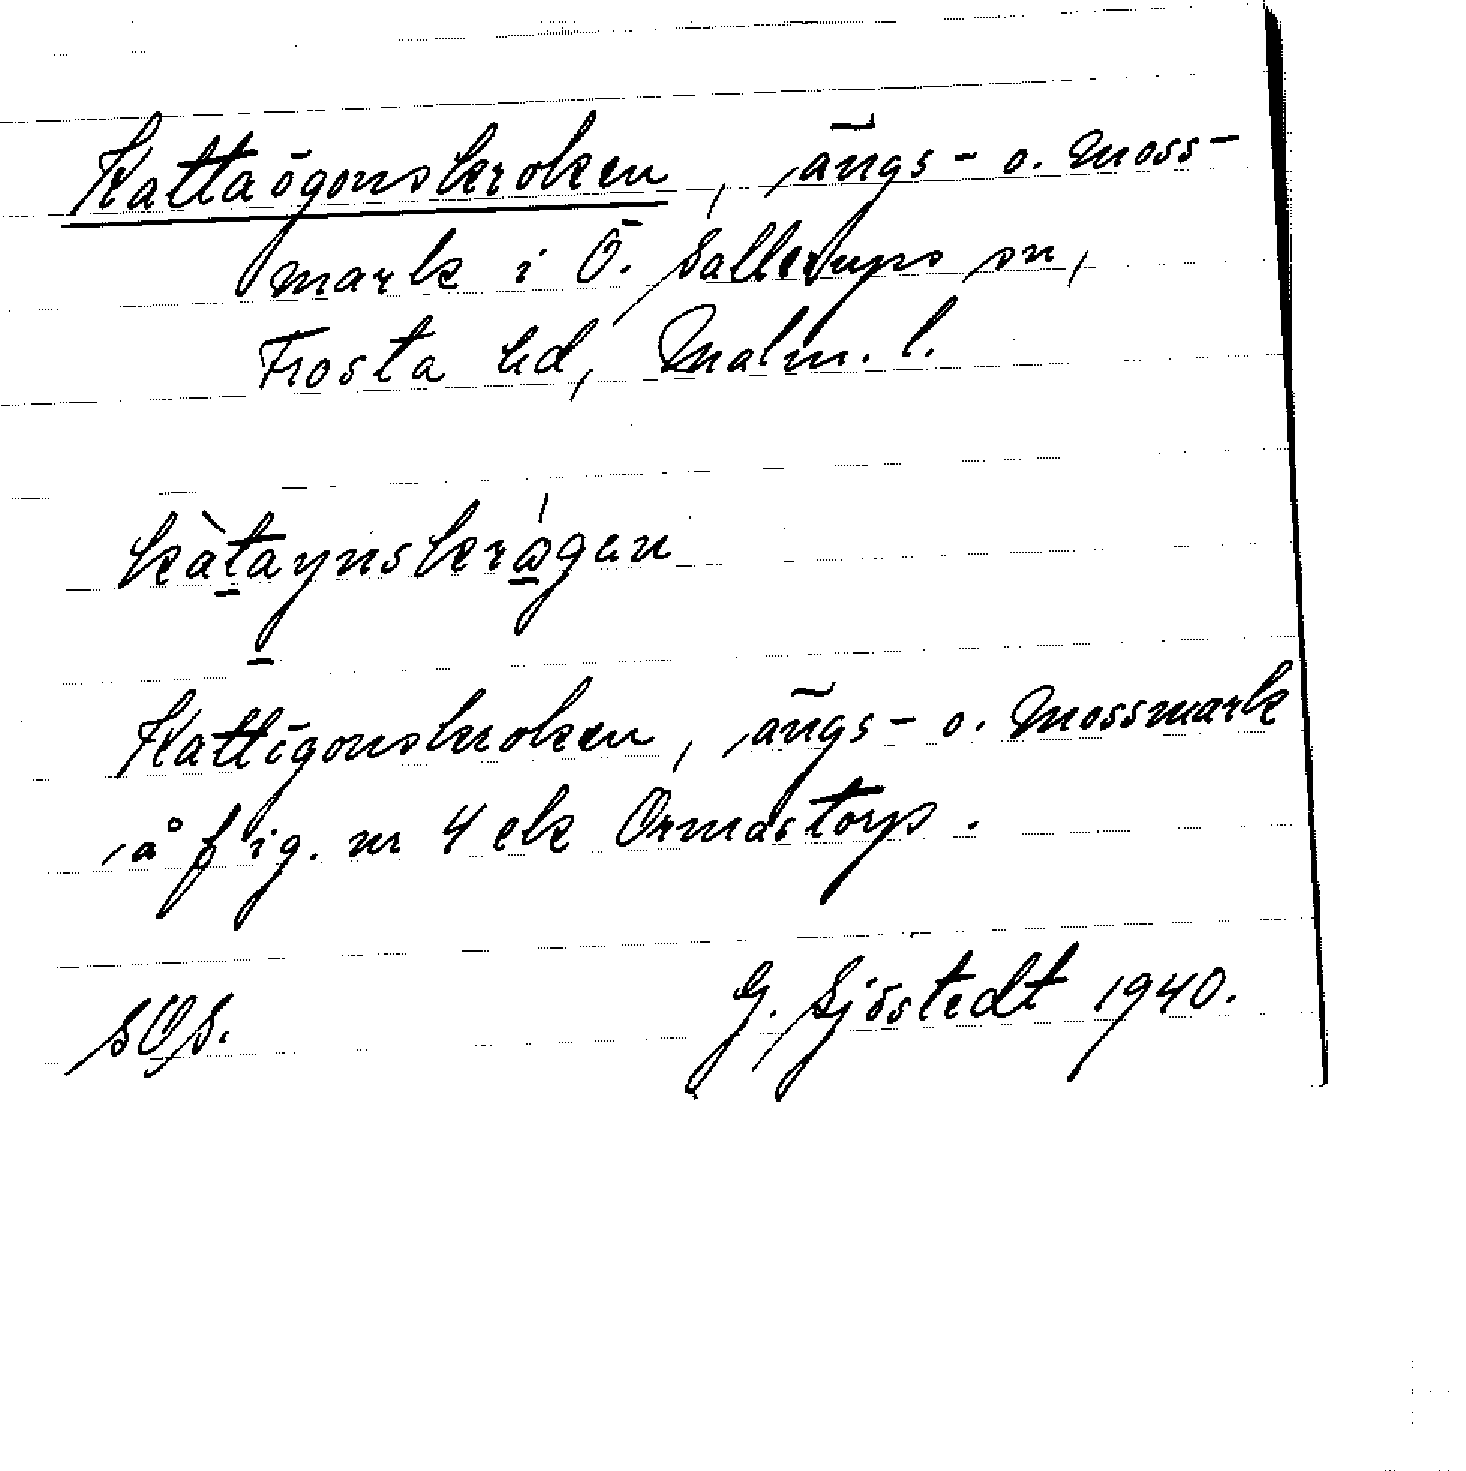 Kattaögonskroken, ängs- o. moss-
mark i Ö. Sallerups sn,
Frosta hd, Malm. l.
kàtaynskrågen
Kattögonskroken, ängs- o. mossmark
å fig. nr 4 ek Ormastorp.
SOS.
G. Sjöstedt 1940.